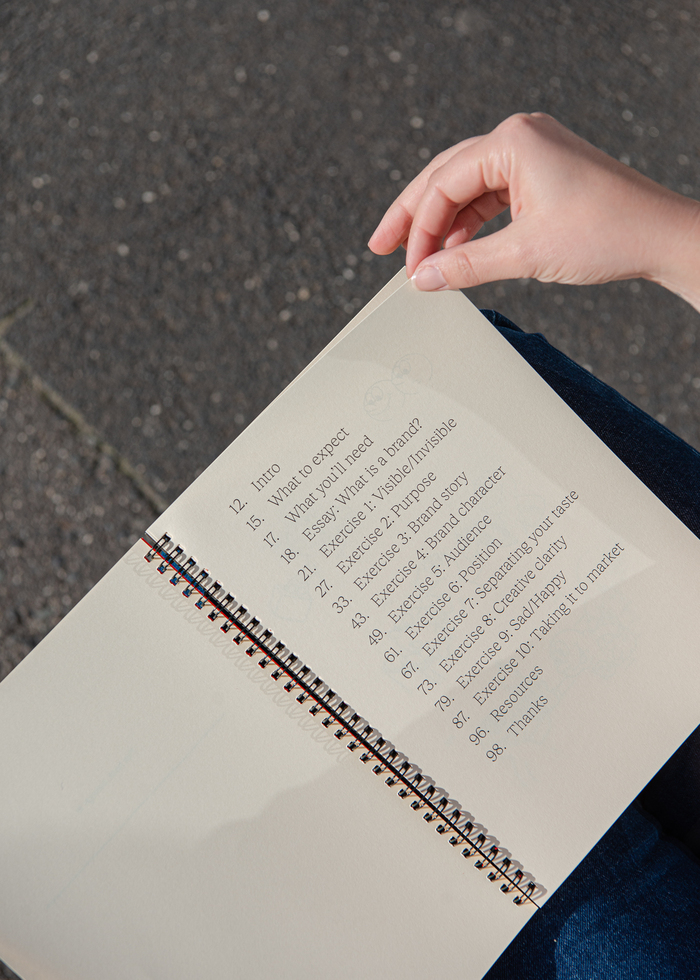 12. Intro
15. What to expect
17. What you'll need
18. Essay: What is a brand?
21. Exercise 1: Visible/Invisible
27. Exercise 2: Purpose
33. Exercise 3: Brand story
43. Exercise 4: Brand character
49. Exercise 5: Audience
61. Exercise 6: Position
67. Exercise 7: Separating your taste
73. Exercise 8: Creative clarity
79. Exercise 9: Sad/Happy
87. Exercise 10: Taking it to market
96. Resources
98. Thanks